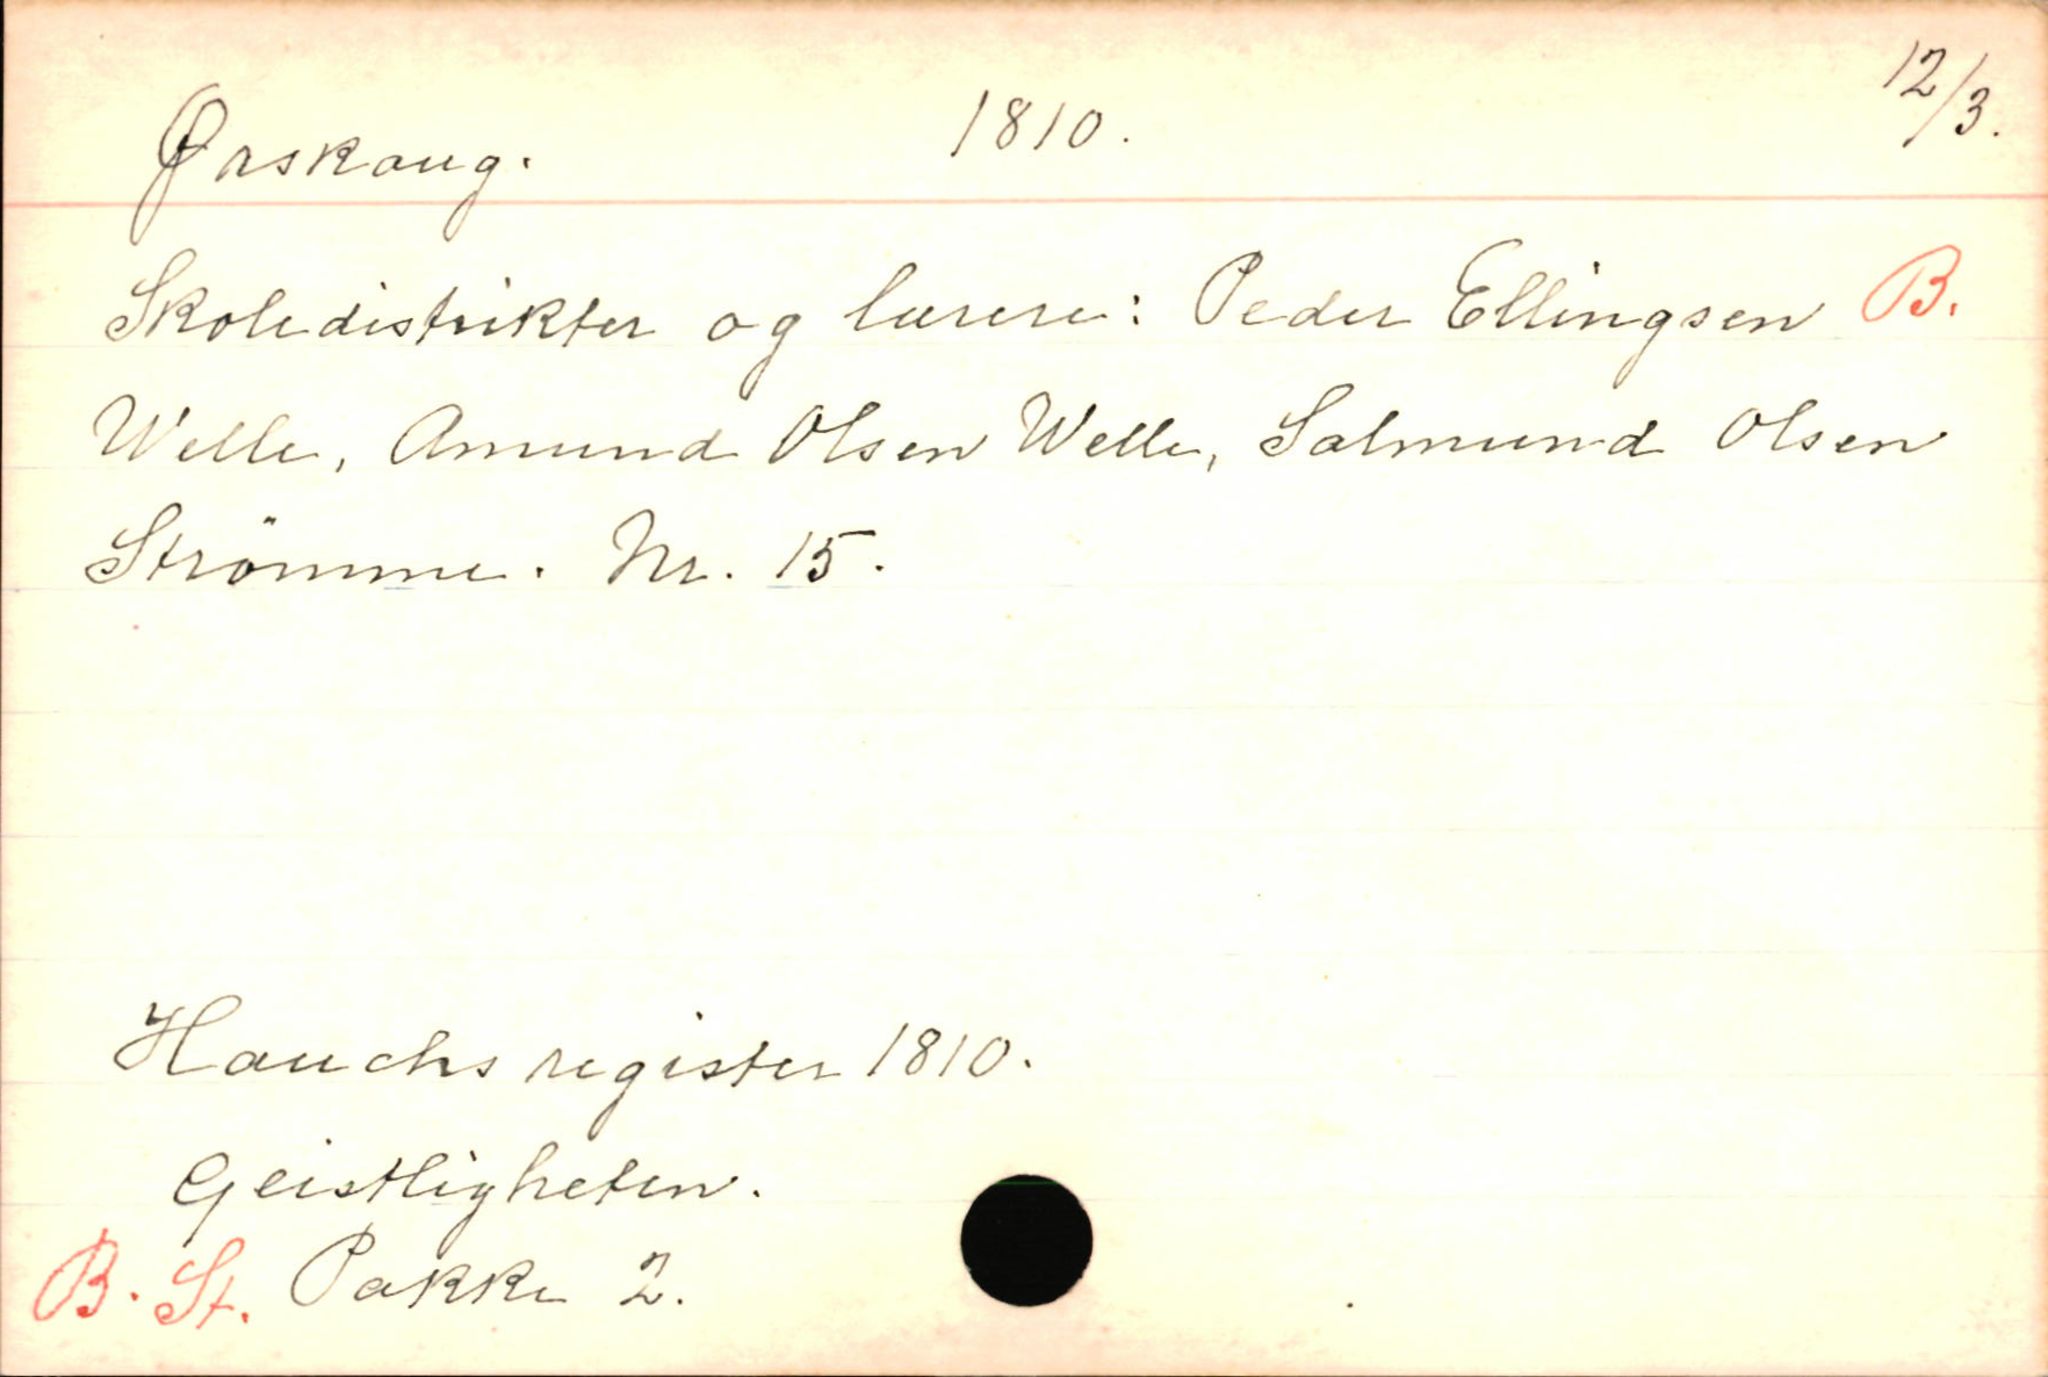 Ørskoug. 1810. 12/3.
Skoledistrikter og lærere: Peder Ellingsen B.
Welle, Amund Olsen Welle, Salmund Olsen
Strömme. Nr. 15.
Hauchs register 1810.
Geistligheten.
B. St. Pakke 2.